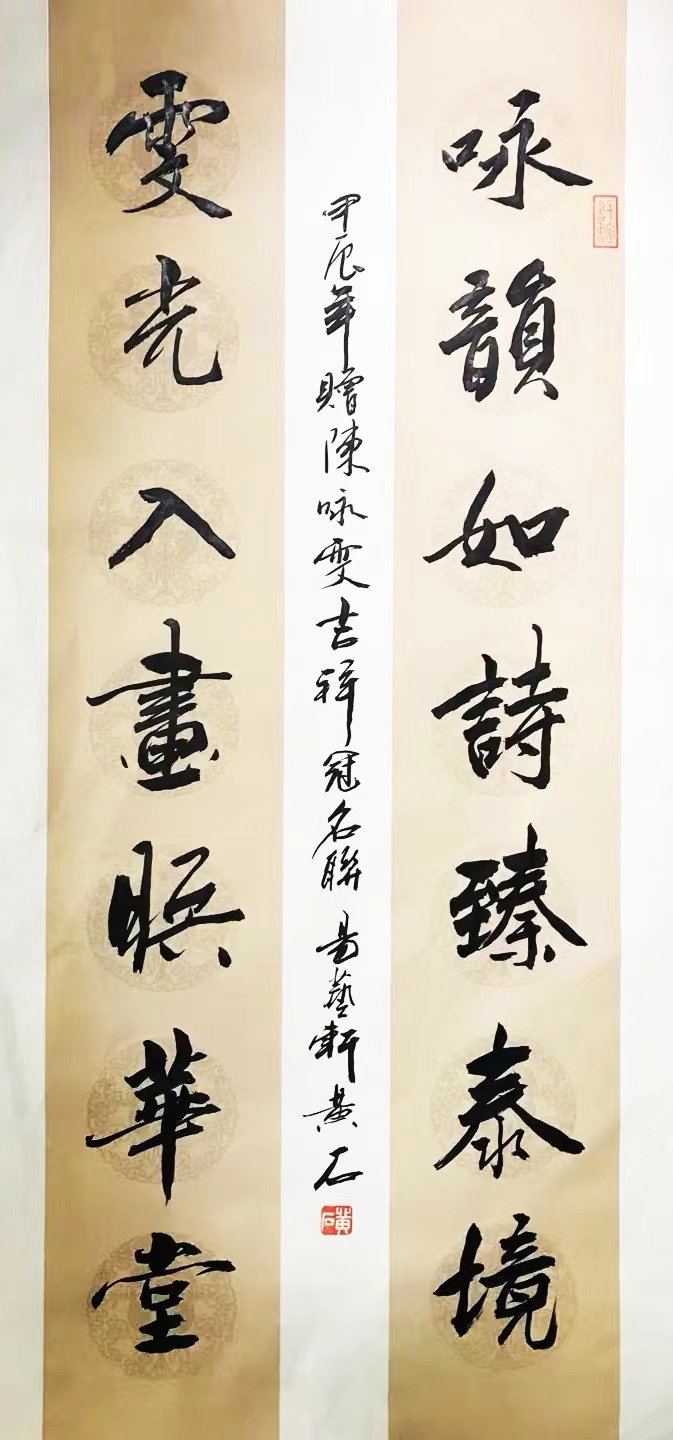 咏韻如詩臻泰境
雯光入畫暎華堂
甲辰年贈陳咏雯吉祥冠名聯 易藝軒黄石
黄石